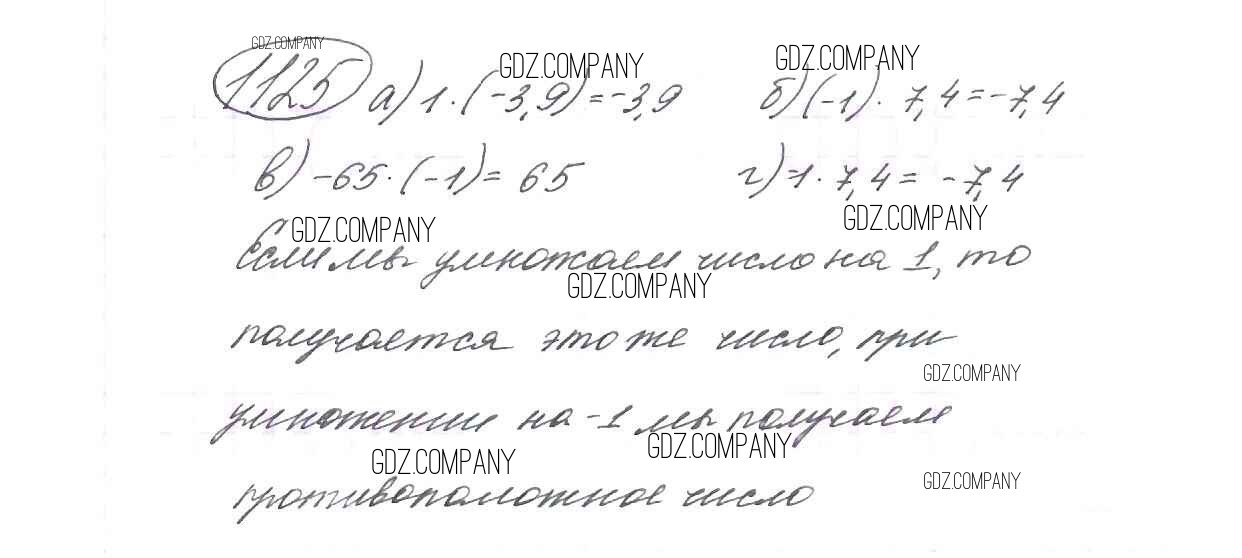 GDZ.COMPANY
GDZ.COMPANY GDZ.COMPANY
1125 а) 1·(-3,9)=-3,9 б) (-1)·7,4=-7,4
в) -65·(-1)=65 г) -1·7,4=-7,4
GDZ.COMPANY GDZ.COMPANY
Если мы умножаем число на 1, то
GDZ.COMPANY
получается это же число, при
GDZ.COMPANY
умножении на -1 мы получаем
GDZ.COMPANY GDZ.COMPANY
GDZ.COMPANY
противоположное число